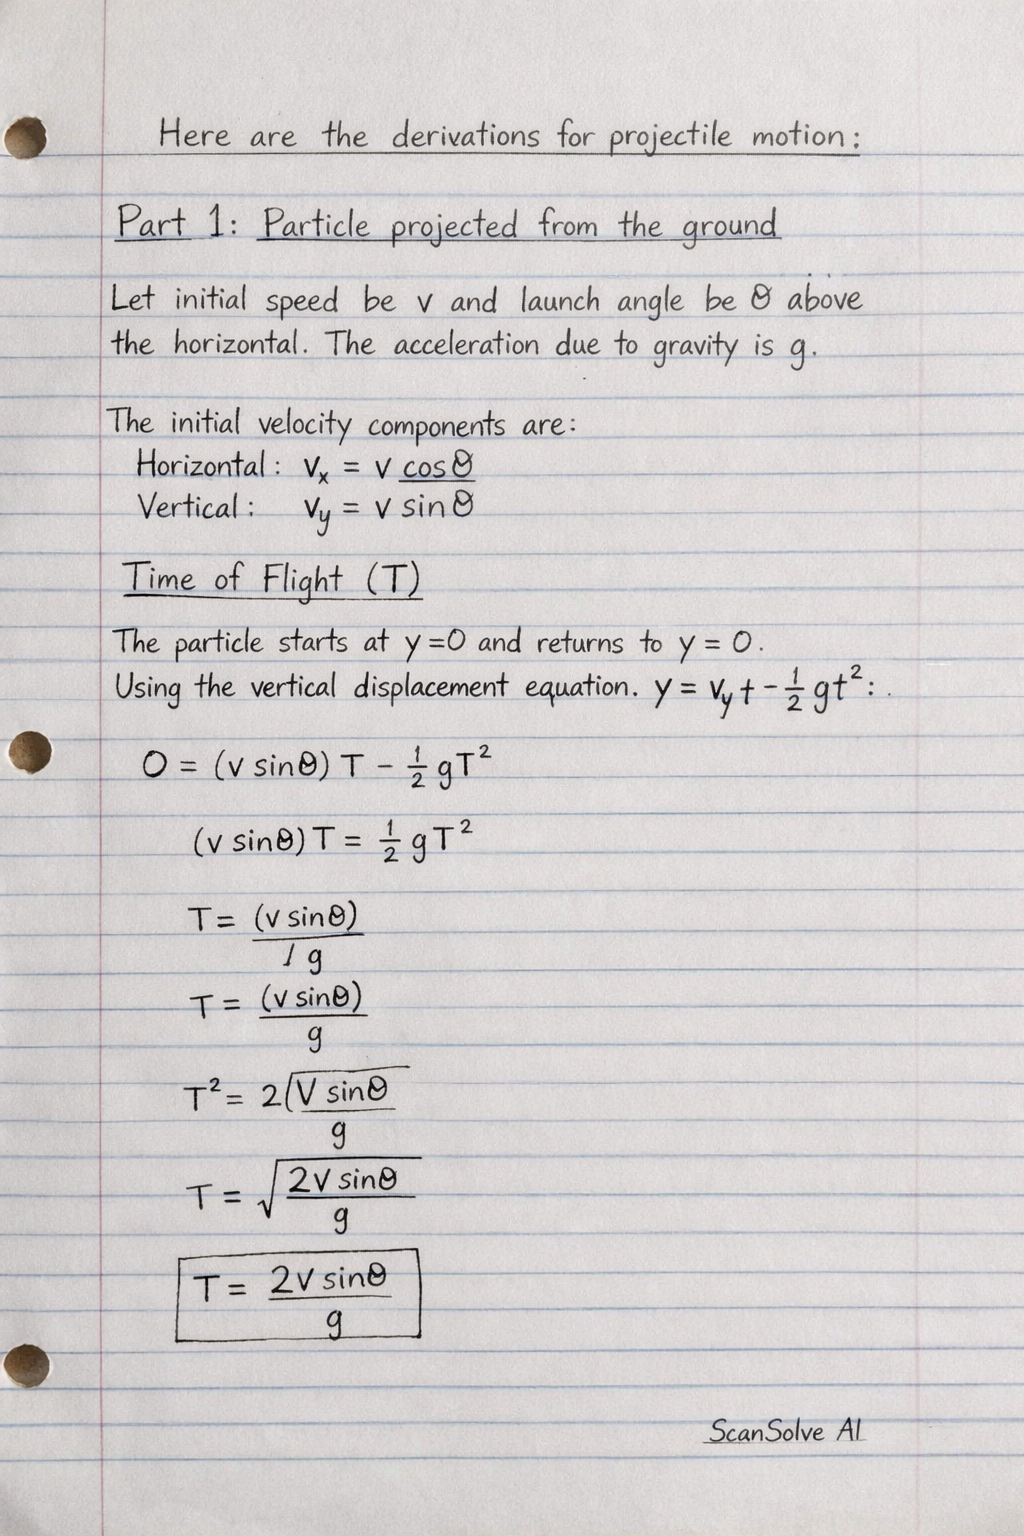 Here are the derivations for projectile motion:
Part 1: Particle projected from the ground
Let initial speed be v and launch angle be θ above
the horizontal. The acceleration due to gravity is g.
The initial velocity components are:
Horizontal: Vx = v cosθ
Vertical: Vy = v sinθ
Time of Flight (T)
The particle starts at y=0 and returns to y = 0.
Using the vertical displacement equation. y = Vy t - 1/2 gt²:.
0 = (v sinθ) T - 1/2 gT²
(v sinθ) T = 1/2 gT²
T = (v sinθ) / 1 g
T = (v sinθ) / g
T² = 2(V sinθ / g
T = √(2v sinθ / g)
T = 2v sinθ / g
ScanSolve AI